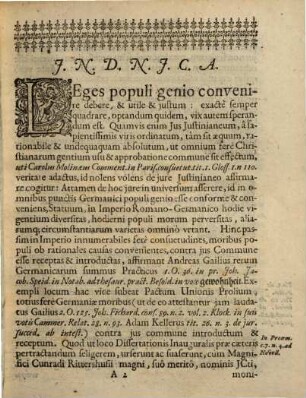 J. N. D. N. J. C. A.
LEges populi genio conveni-
re debere, & utile & justum: exacte semper
quadrare, optandum quidem, vix autem speran-
dum est. Quamvis enim Jus Justinianeum, à sa-
pientissimis viris ordinatum, tàm sit æquum, ra-
tionabile & undequaquam absolutum, ut omnium ferè Chri-
stianarum gentium usu & approbatione commune sit effectum,
uti Carolus Molinæus Comment. in Paris. consuet. tit. 1. Gloss. 1. n. 110
veritate adactus, id nolens volens de jure Justinianeo affirma-
re cogitur: Attamen de hoc jure in universum asserere, id in o-
mnibus punctis Germanici populi genio esse conforme & con-
veniens, Statuum, in Imperio Romano-Germanico hodie vi-
gentium diversitas, hodierni populi morum perversitas, alia-
rumq; circumstantiarum varietas omninò vetant. Hinc pas-
sim in Imperio innumerabiles ferè consuetudines, moribus po-
puli ob rationales causas convenientes, contra jus Commune
esse receptas & introductas, affirmat Andreas Gailius rerum
Germanicarum summus Practicus 1. O. 36. in pr. Joh. Ja-
cob. Speid. in Notab. ad thesaur. pract. Besold. in voc gewohnheit. Ex-
empli locum hac vice subeat Pactum Unionis Prolium,
totius ferè Germaniæ moribus (ut de eo attestantur jam lauda-
tus Gailius 2. O. 125. Joh. Fichard. conf. 59. n. 2. vol. 2. Klock. in sui
votis Cammer. Relat. 23. n. 93. Adam Kellerus tit. 26. n. 5. de jur.
succed. ab intest.) contra jus commune introductum &
receptum. Quod ut loco Dissertationis Inauguralis præ cæteris
pertractandum seligerem, urserunt ac suaserunt, cum Magni-
fici Cunradi Rittershusii magni, suô meritò, nominis JCti,
In Proœm.
A 2
moni-